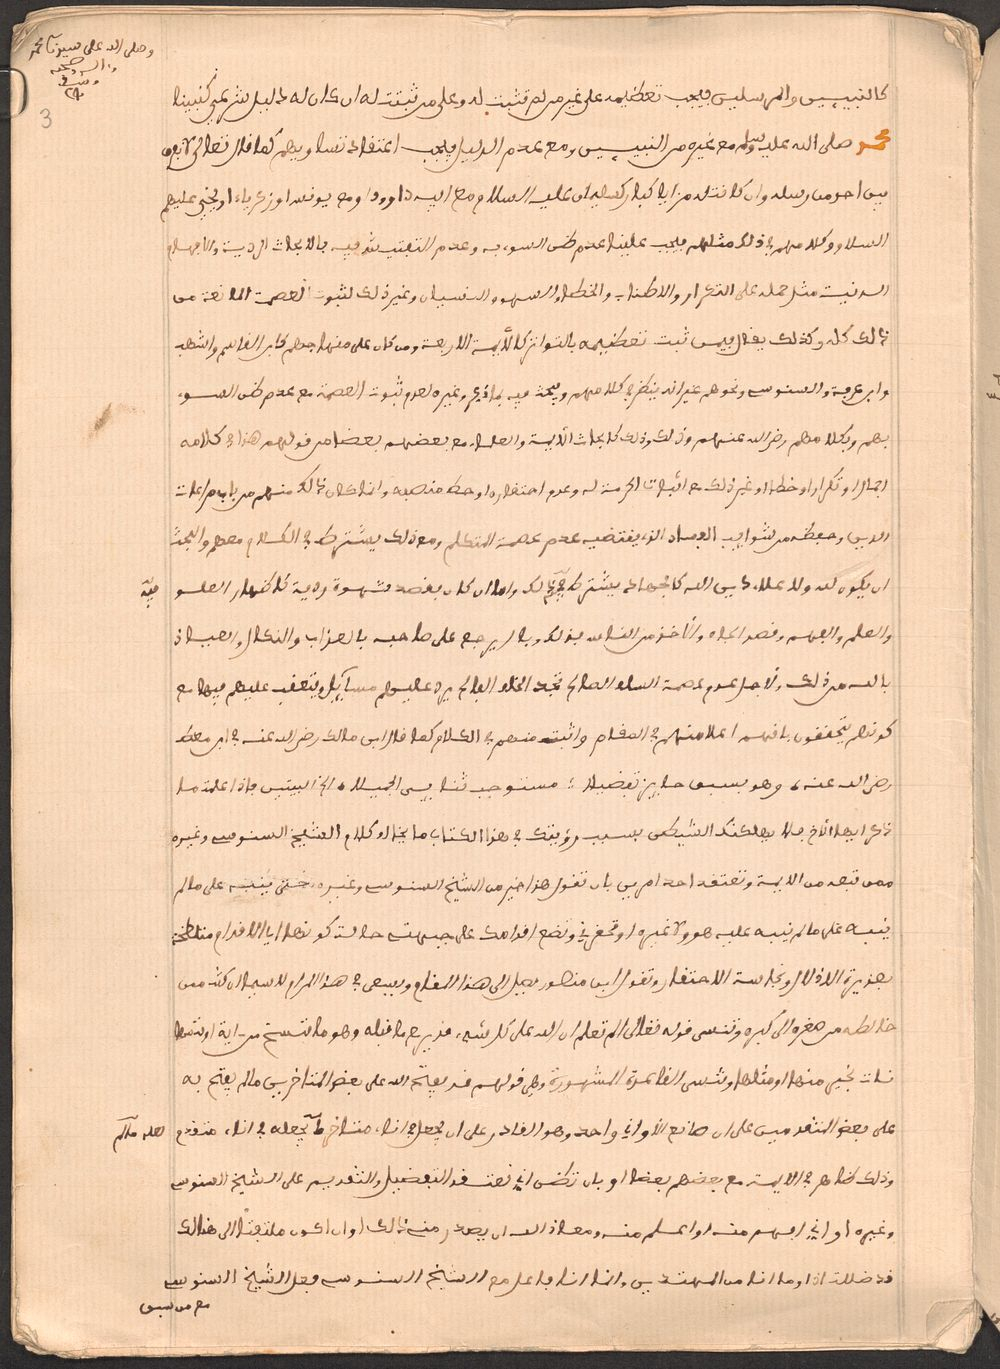 وصلى الله على سيدنا محمد
وآله وصحبه
3
كالنبيين والمرسلين فيجب تعظيمه على غير من لم تثبت له وعلى من ثبتت له ان كان له دليل شرعي كنبينا
محمد صلى الله عليه وسلم مع غيره من النبيين ومع عدم الدليل فيجب اعتقاد تساويهم كما قال تعالى لا نفرق
بين احد من رسله وان كانت له مزايا كبار كسليمان عليه السلام مع ابيه داوود او مع يونس او زكرياء او يحيى عليهم
السلام وكلامهم في ذلك مثلهم فيجب علينا عدم ظن السوء به وعدم التفتيش فيه بالابحاث الردية والافهام
الدنية مثل حمله على التكرار والاطناب والخطإ والسهو والنسيان وغير ذلك لثبوت العصمة المانعة من
ذالك كله وكذلك يقال فيمن ثبت تعظيمه بالتواتر كالأيمة الاربعة ومن كان على منهاجهم كابن القاسم واشهب
وابن عرفة والسنوسي ونحوهم غير انه ينظر في كلامهم ويبحث فيه بما ذكر وغيره لعدم ثبوت العصمة مع عدم ظن السوء
بهم وبكلامهم رضي الله عنهم وذلك كابحاث الأيمة والعلماء مع بعضهم بعضا من قولهم هذا في كلامه
اجمال او تكرار او خطا او غير ذلك مع اثبات الحرمة له وعدم احتقاره او حط منصبه وانما كان ذالك منهم من باب مراعات
الدين وحفظه من شوايب الفساد الذي يقتضيه عدم عصمة المتكلم ومع ذلك يشترط في الكلام معهم والبحث
ان يكون لله ولاعلاء دين الله كالجهاد يشترط فيه ذالك واما ان كان بقصد شهوة ردية كاظهار العلو
فيه
والعلم والفهم وقصد الجاه والأخذ من الناس بذلك وبال يرجع على صاحبه بالعذاب والنكال والعياذ
بالله من ذلك ولأجل عدم عصمة السلف الصالح تجد الخلف الفالح يرد عليهم مسايل ويتعقب عليهم فيها مع
كونهم يتحققون بانهم اعلا منهم في المقام واثبت منهم في الكلام كما قال ابن مالك رضي الله عنه في ابن معط
رضي الله عنه وهو بسبق حايز تفضيلا مستوجب ثناءي الجميلا الخ البيتين فاذا علمت ما
ذكر ايها الأخ فلا يهلكنك الشيطن بسبب رؤيتك في هذا الكتاب ما يخالف كلام الشيخ السنوسي وغيره
ممن تبعه من الايمة وتعتقد احد امرين بان تقول هذا خير من الشيخ السنوسي وغيره حتى ينبه على ما لم
ينبه على ما لم ينبه عليه هو ولا غيره او تحقرني وتضع اقدامك على جبهتي حالت كونها اي الاقدام متلطخة
بعذيرة الاذلال ونجاسة الاحتقار وتقول اين منصور يصل الى هذا المقام ويسعى في هذا المرام لا سيما ان كنت ممن
خالطه من صغره الى كبره وتنسى قوله تعالى الم تعلم ان الله على كل شيء قدير مع ما قبله وهو ما ننسخ من ءاية او ننسها
نات بخير منها او مثلها وتنسى القاعدة المشهورة وهي قولهم قد يفتح الله على بعض المتاخرين ما لم يفتح به
على بعض المتقدمين على ان صانع الأواني واحد وهو القادر على ان يجعل في اناء متاخر ما لم يجعله في اناء متقدم
وذلك ظاهر في الايمة مع بعضهم بعضا او بان تظن اني نعتقد التفضيل والتقديم على الشيخ السنوسي
وغيره او اني افهم منه او اعلم منه ومعاذ الله ان يصدر مني ذالك او ان اكون ملتفتا الى هنالك
قد ضللت اذا وما انا من المهتدين وانما انا فاعل مع الشيخ السنوسي فعل الشيخ السنوسي
مع من سبق